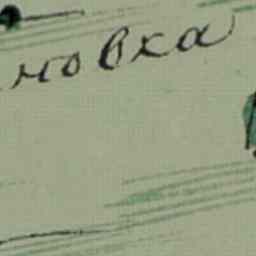 новка